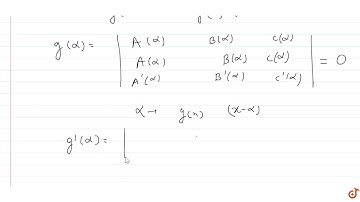 g(α) = | A(α) B(α) C(α) |
| A(α) B(α) C(α) | = 0
| A'(α) B'(α) C'(α) |
α → g(x) (x-α)
g'(α) = |